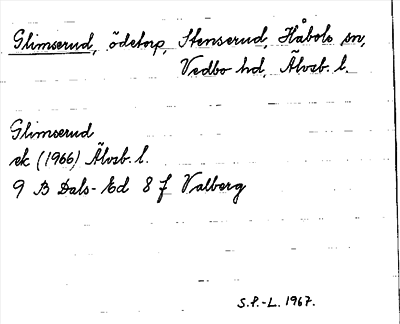 Glimserud, ödetorp, Stenserud, Håbols sn,
Vedbo hd, Älvsb. l.
Glimserud
ek (1966) Älvsb. l.
9 B Dals-Ed 8 f Valberg
S.P.-L. 1967.